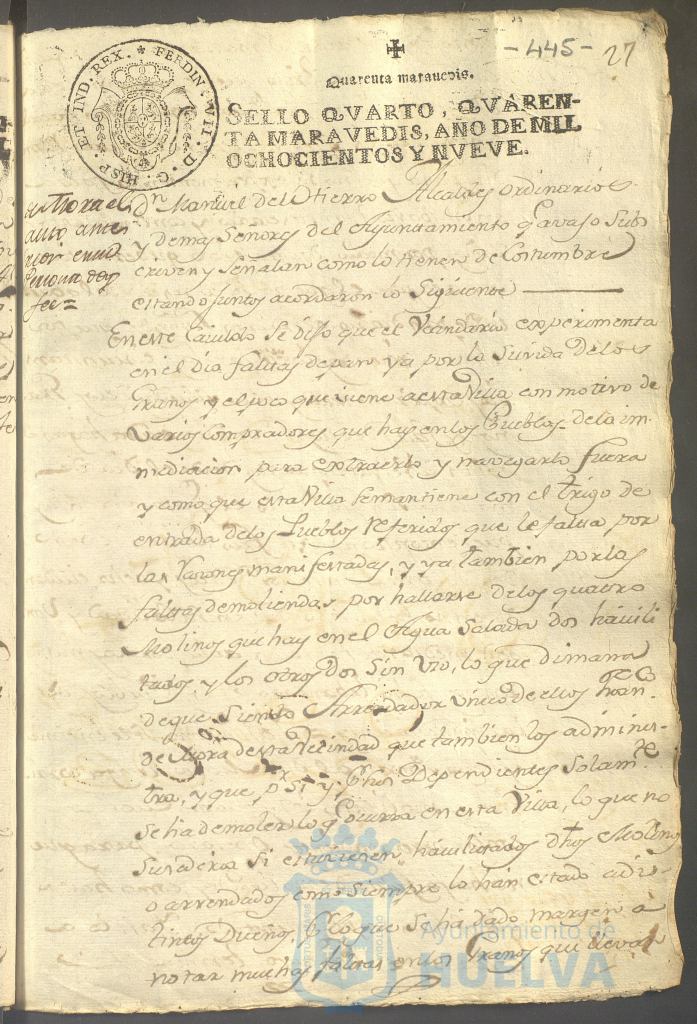 - 445 - 27
FERDIN. VII. D. G. HISP. ET IND. REX.
Quarenta marauedis.
SELLO QVARTO, QVAREN-
TA MARAVEDIS, AÑO DE MIL
OCHOCIENTOS Y NVEVE.
Dn Manuel del tierro Alcaldes ordinarios
y demas Señores del Ayuntamiento q avaxo Subs
criven y Señalan como lo tienen de Costumbre
estando juntos acordaron lo Siguiente
En este Cavildo Se dijo que el Vecindario experimenta
en el dia faltas de pan ya por la Suvida de los
Granos y el poco que viene a esta Villa con motivo de
varios Compradores que hay en los Pueblos de la im
mediacion para extraerlo y navegarlo fuera
y como que esta Villa Se mantiene con el trigo de
entrada de los Pueblos referidos que le falta por
las razones manifestadas, y ya tambien por las
faltas de moliendas, por hallarse de los quatro
Molinos que hay en el Agua Salada dos havili
tados, y los otros dos Sin Uso, lo que dimana
de que Siendo Arrendador unico de ellos
de esta Vecindad que tambien los adminis-
tra, y que pr Si y Dependientes Solamte
Se ha de moler lo q ocurra en esta Villa, lo que no
Sucediera Si estuviesen havilitados dhos Molinos
o arrendados como Siempre lo han estado a dis
tintos Dueños, lo que Se ha dado margen a
notar muchas faltas en los Granos que llevan
Ayuntamiento de
HUELVA